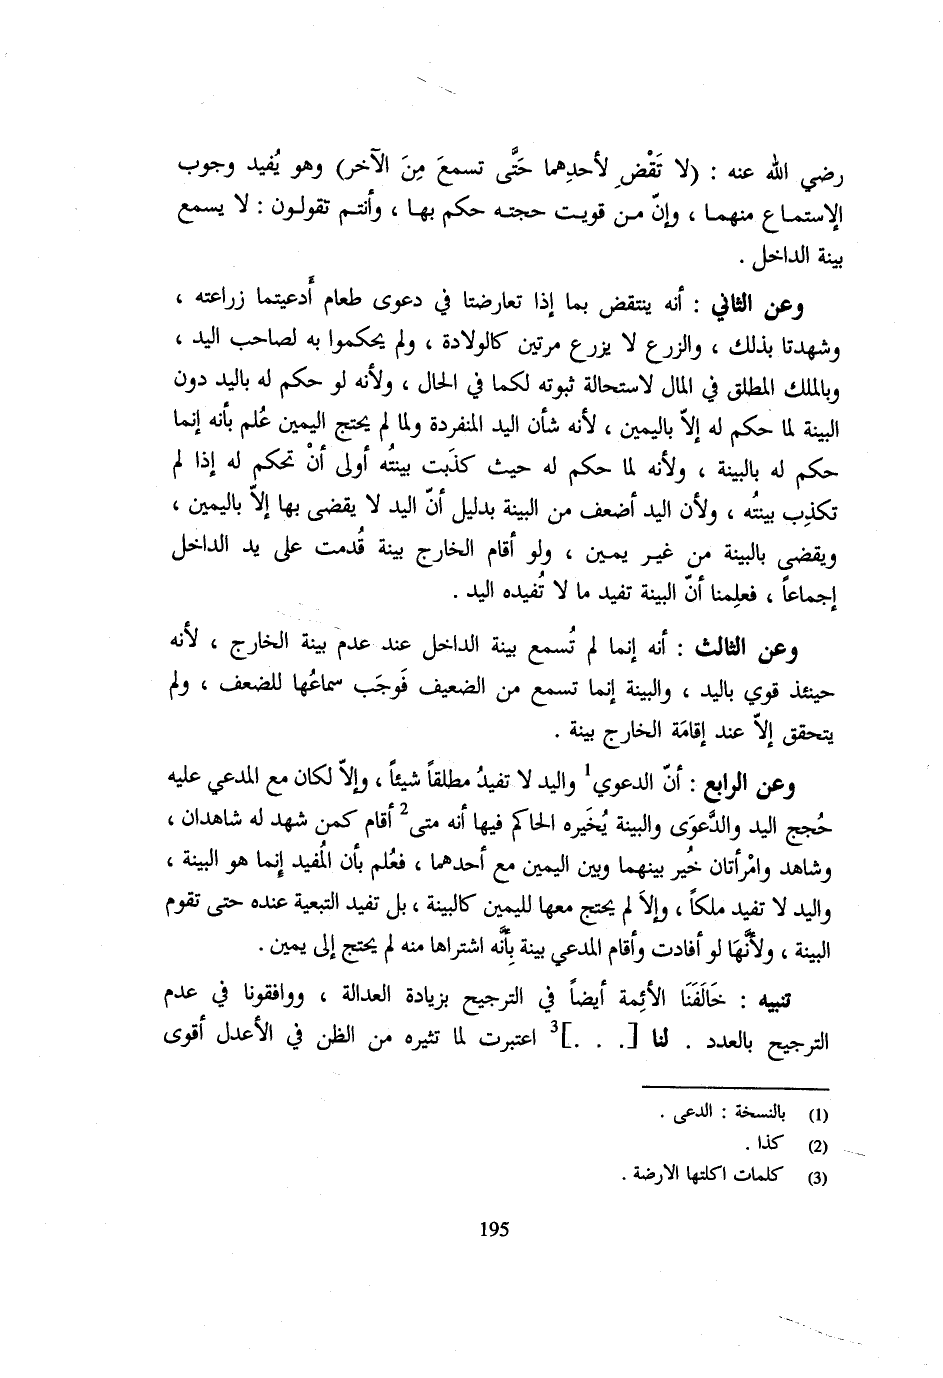 رضي الله عنه : (لا تَقْضِ لأحدِهما حَتَّى تسمعَ مِنَ الآخر) وهو يُفيد وجوب
الإستماع منهما ، وإنّ من قويت حجته حكم بها ، وأنتم تقولون : لا يسمع
بينة الداخل .
وعن الثاني : أنه ينتقض بما إذا تعارضتا في دعوى طعام أُدعيتما زراعته ،
وشهدتا بذلك ، والزرع لا يزرع مرتين كالولادة ، ولم يحكموا به لصاحب اليد ،
وبالملك المطلق في المال لاستحالة ثبوته لكما في الحال ، ولأنه لو حكم له باليد دون
البينة لما حكم له إلاّ باليمين ، لأنه شأن اليد المنفردة ولما لم يحتج اليمين عُلم بأنه إنما
حكم له بالبينة ، ولأنه لما حكم له حيث كذَبت بينتُه أولى أنْ تحكم له إذا لم
تكذِب بينتُه ، ولأن اليد أضعف من البينة بدليل أنّ اليد لا يقضى بها إلاّ باليمين ،
ويقضى بالبينة من غير يمين ، ولو أقام الخارج بينة قُدمت على يد الداخل
إجماعاً ، فعلِمنا أنّ البينة تفيد ما لا تُفيده اليد .
وعن الثالث : أنه إنما لم تُسمع بينة الداخل عند عدم بينة الخارج ، لأنه
حينئذ قوي باليد ، والبينة إنما تسمع من الضعيف فَوجَب سماعُها للضعف ، ولم
يتحقق إلاّ عند إقامَة الخارج بينة .
وعن الرابع : أنّ الدعوي1 واليد لا تفيدُ مطلقاً شيئاً ، وإلاّ لكان مع المدعي عليه
حُجج اليد والدَّعوَى والبينة يُخَيره الحاكم فيها أنه متى2 أقام كمن شهد له شاهدان ،
وشاهد وامْرأتان خُير بينهما وبين اليمين مع أحدهما ، فعُلم بأن المُفيد إنما هو البينة ،
واليد لا تفيد ملكاً ، وإلاَ لم يحتج معها لليمين كالبينة ، بل تفيد التبعية عنده حتى تقوم
البينة ، ولأنَّهَا لو أفادت وأقام المدعي بينة بِأنَّه اشتراها منه لم يحتج إلى يمين .
تنبيه : خَالَفَنَا الأئِمة أيضاً في الترجيح بزيادة العدالة ، ووافقونا في عدم
الترجيح بالعدد . لنا [. . .]3 اعتبرت لما تثيره من الظن في الأعدل أقوى
(1) بالنسخة : الدعى .
(2) كذا .
(3) كلمات اكلتها الارضة .
195